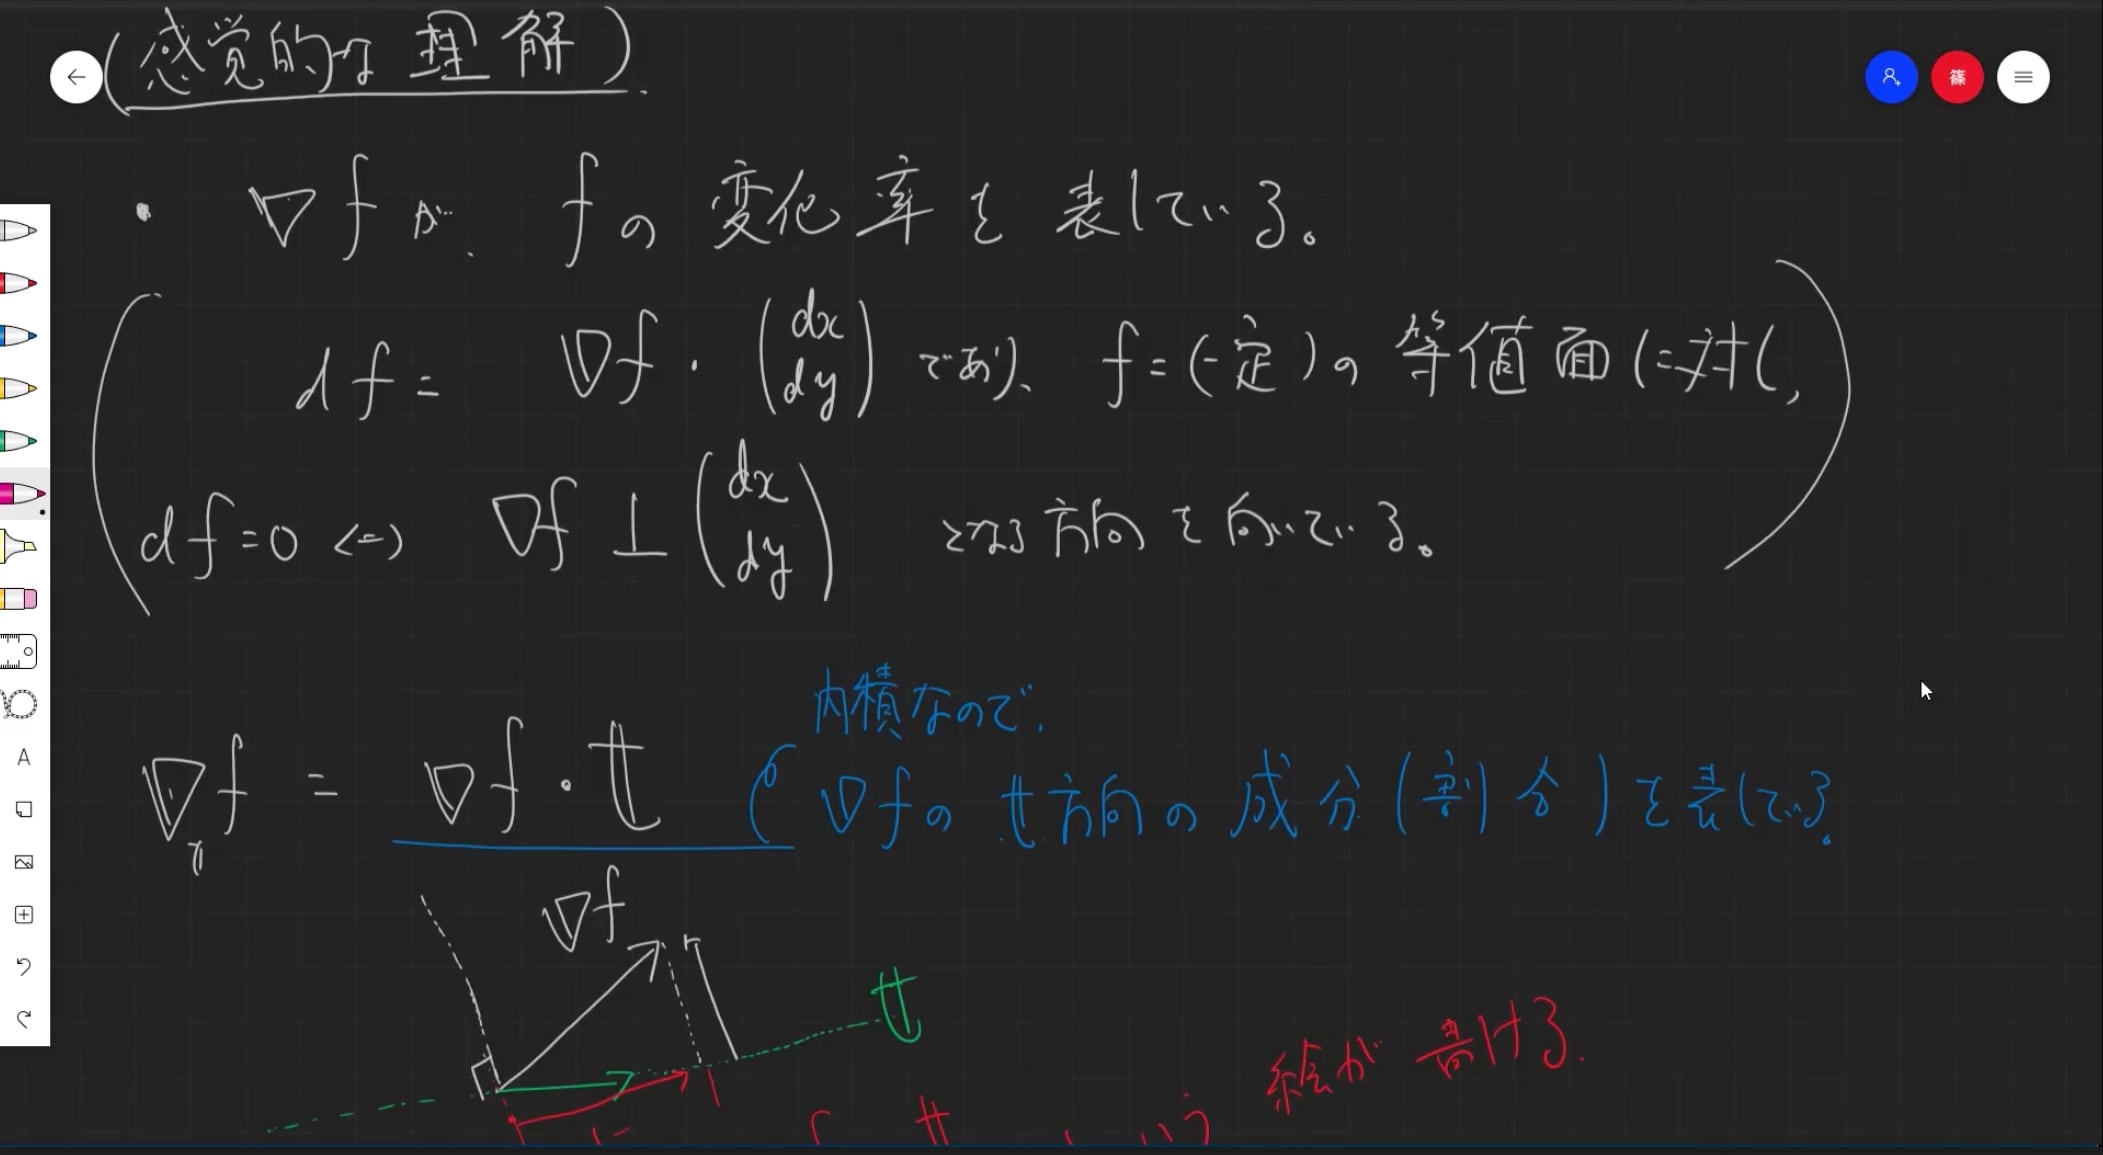 (感覚的な理解)
・ ∇f が、 f の 変化率を表している。
df = ∇f・(dx dy) であり、 f=(一定)の等値面に対し,
df=0 ⇔ ∇f ⊥ (dx dy) となる方向を向いている。
内積なので、
∇f = ∇f・t ∇fの t方向の成分(割合)を表している。
∇f
t
絵が書ける.
t
篠
A